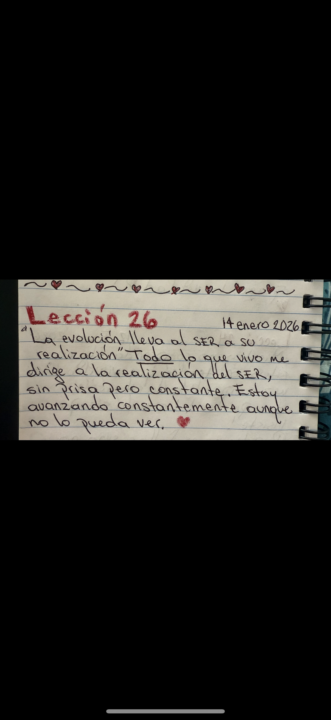 Lección 26
14 enero 2026
"La evolución lleva al SER a su
realización" Todo lo que vivo me
dirige a la realización del SER,
sin prisa pero constante. Estoy
avanzando constantemente aunque
no lo pueda ver.